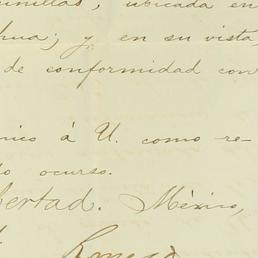 ubicada en
hua; y en su vista,
de conformidad con
nico á U. como re-
do ocurso.
bertad. México,